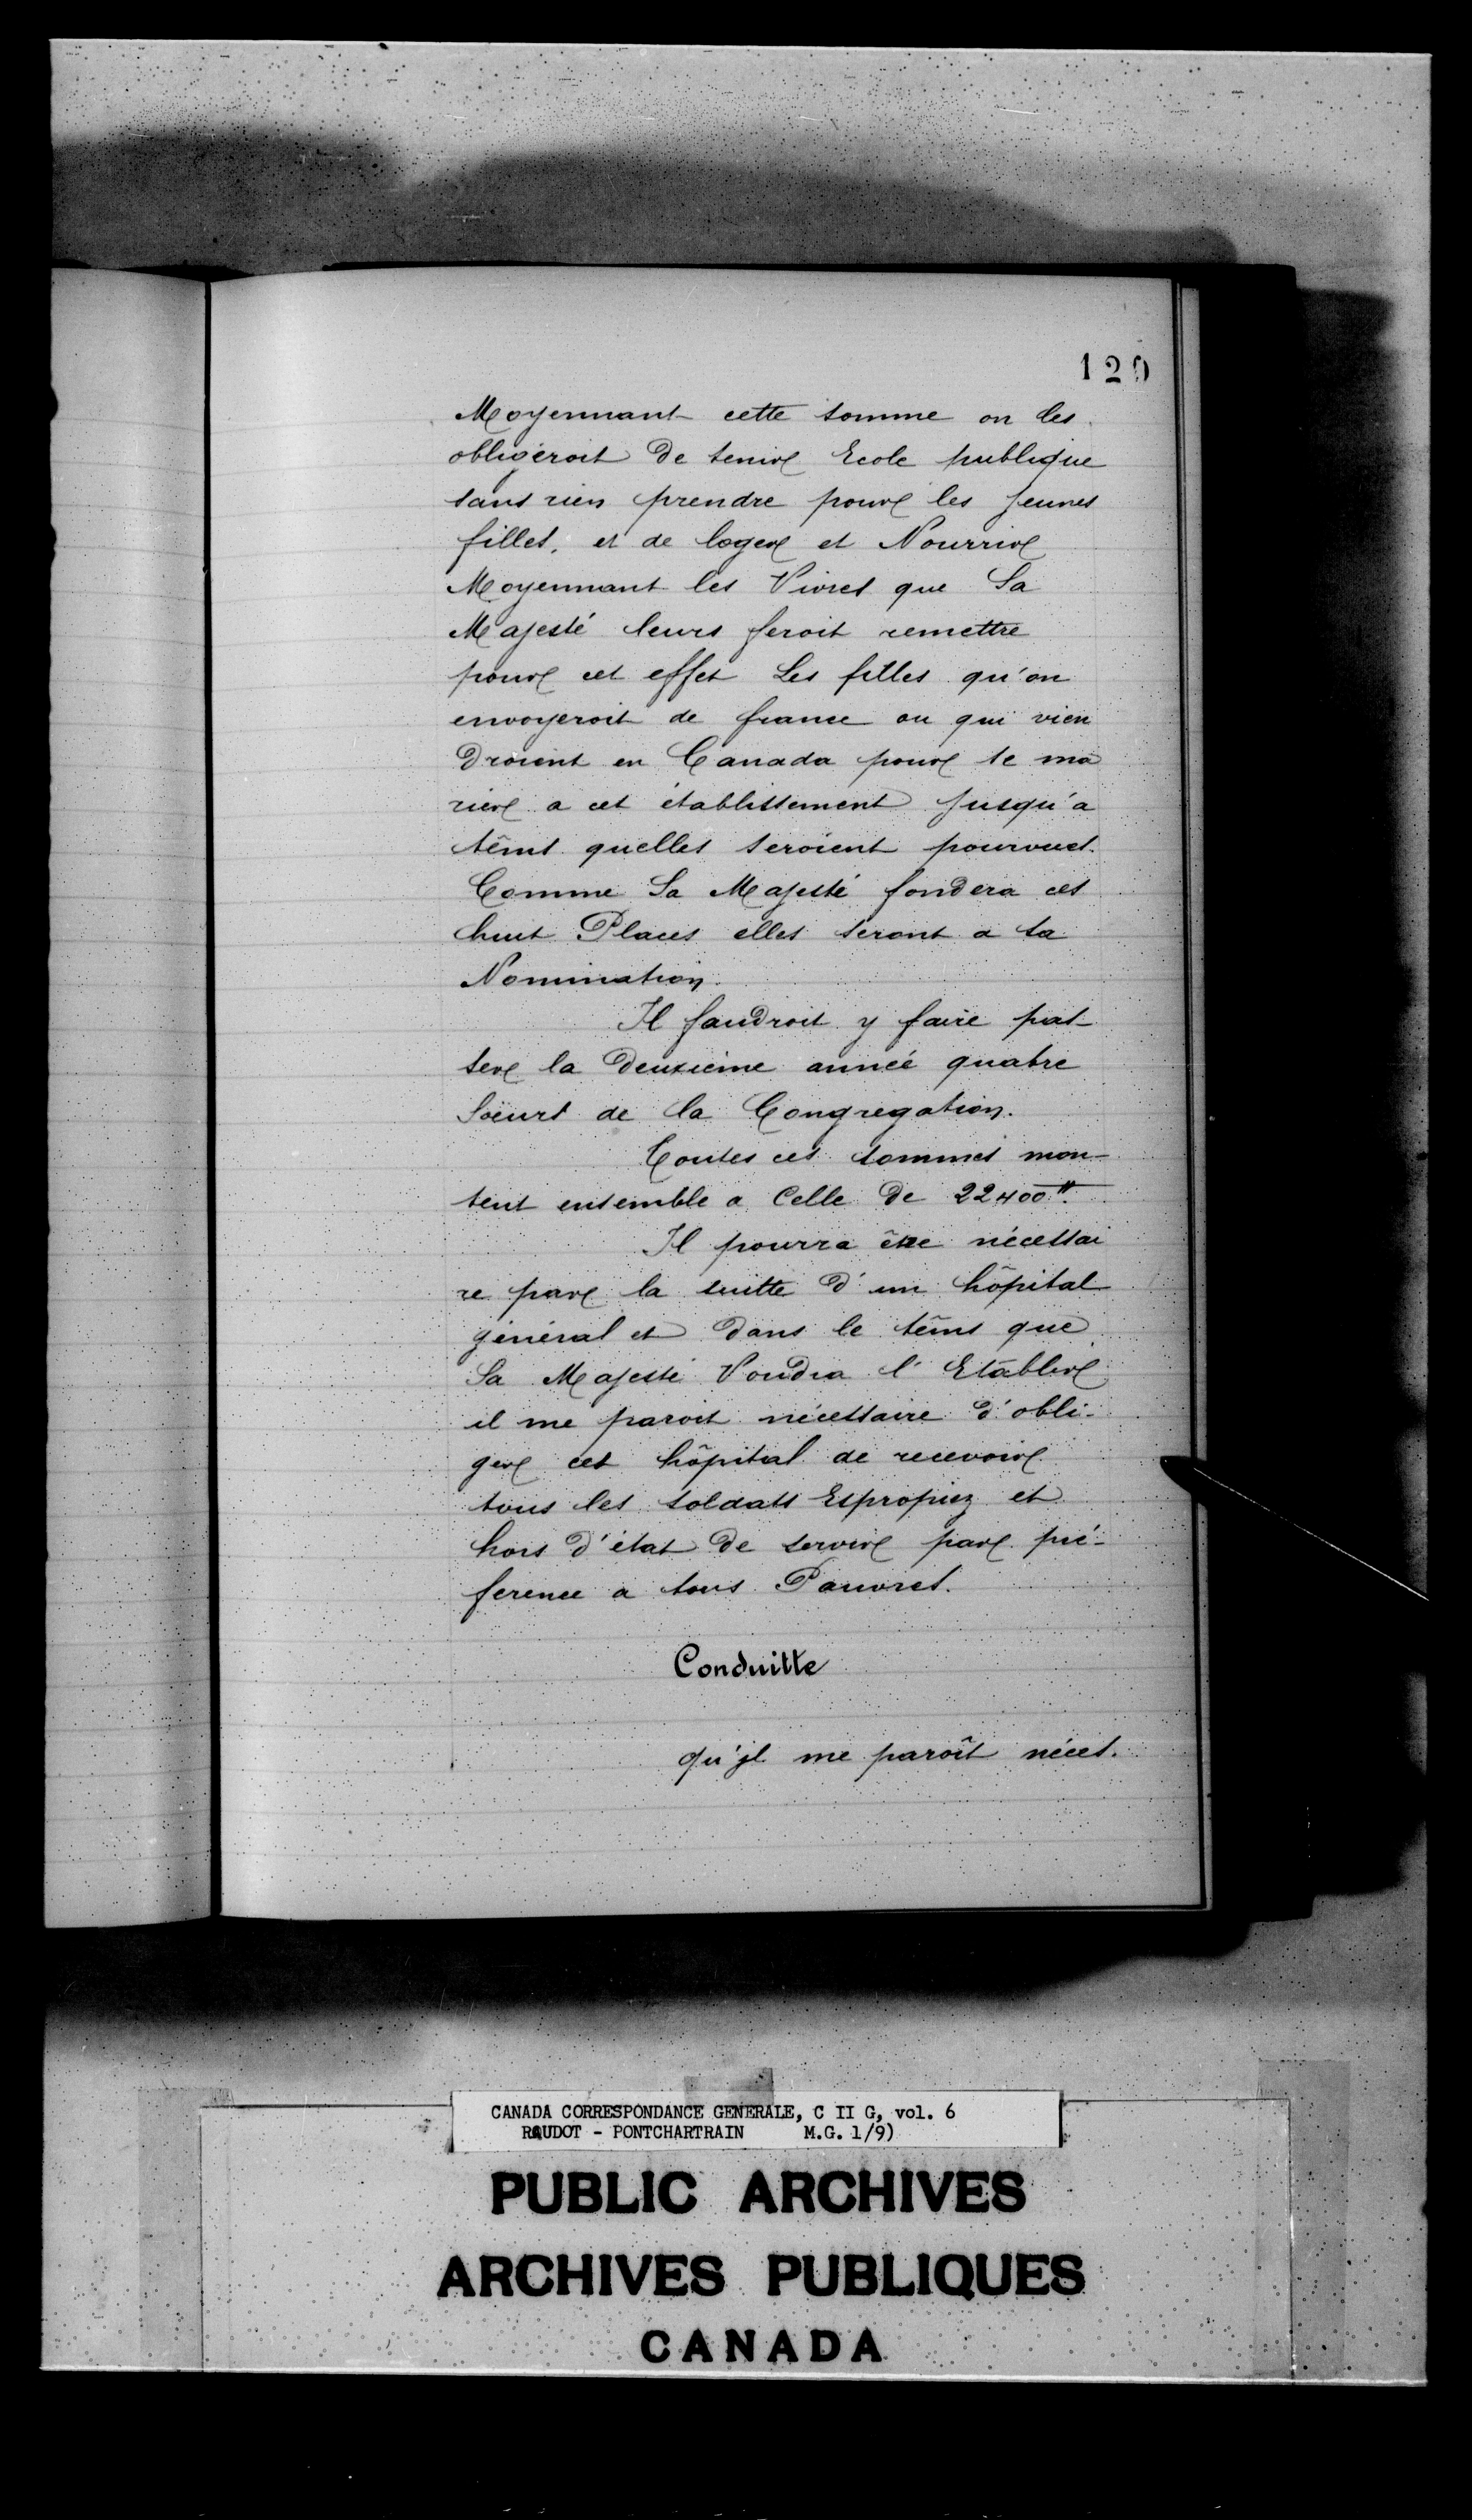 129
Moyennant cette somme on les
obligeroit de tenir Ecole publique
sans rien prendre pour les jeunes
filles, et de loger et Nourrir
Moyennant les Vivres que Sa
Majesté leurs feroit remettre
pour cet effet Les filles qu'on
envoyeroit de france ou qui vien
droient en Canada pour se ma
rier a cet établissement jusqu'a
têms quelles seroient pourvues.
Comme Sa Majesté fondera ces
huit Places elles seront a sa
Nomination.
Il faudroit y faire pas-
ser la deuxième année quatre
Soeurs de la Congregation.
Toutes ces sommes mon-
tent ensemble a Celle de 22400^tt.
Il pourra être nécessai
re par la suitte d'un hôpital
général et dans le têms que
Sa Majesté Voudra l'Etablir
il me paroit nécessaire d'obli-
ger cet hôpital de recevoir
tous les soldats Espropiez et
hors d'état de servir par pré-
ference a tous Pauvres.
Conduitte
qu'jl me paroît néces.
CANADA CORRESPONDANCE GENERALE, C II G, vol. 6
RAUDOT - PONTCHARTRAIN M.G. 1/9)
PUBLIC ARCHIVES
ARCHIVES PUBLIQUES
CANADA